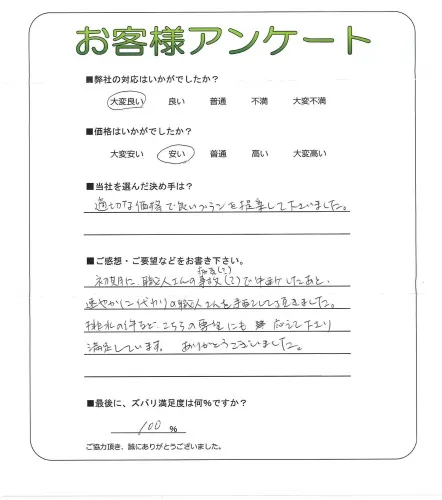 お客様アンケート
■弊社の対応はいかがでしたか？
大変良い 良い 普通 不満 大変不満
■価格はいかがでしたか？
大変安い 安い 普通 高い 大変高い
■当社を選んだ決め手は？
適切な価格で良いプランを提案して下さいました。
■ご感想・ご要望などをお書き下さい。
初期に職人さんの事故(?)で中断したあと、
速やかに代わりの職人さんを手配して頂きました。
排水の件など、こちらの要望にも 応えて下さり
満足しています。ありがとうございました。
■最後に、ズバリ満足度は何％ですか？
100 ％
ご協力頂き、誠にありがとうございました。